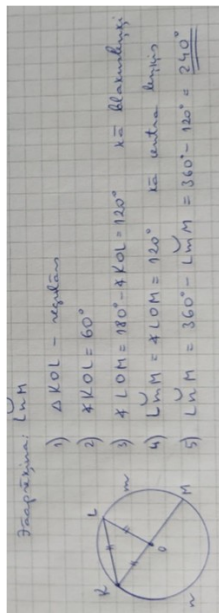 Jāaprēķina: L͝nM
1) ΔKOL – regulārs
2) ∢KOL = 60°
3) ∢LOM = 180° - ∢KOL = 120° kā blakusleņķi
4) L͝mM = ∢LOM = 120° kā centra leņķis
5) L͝nM = 360° - L͝mM = 360° - 120° = 240°
K
L
m
O
M
n